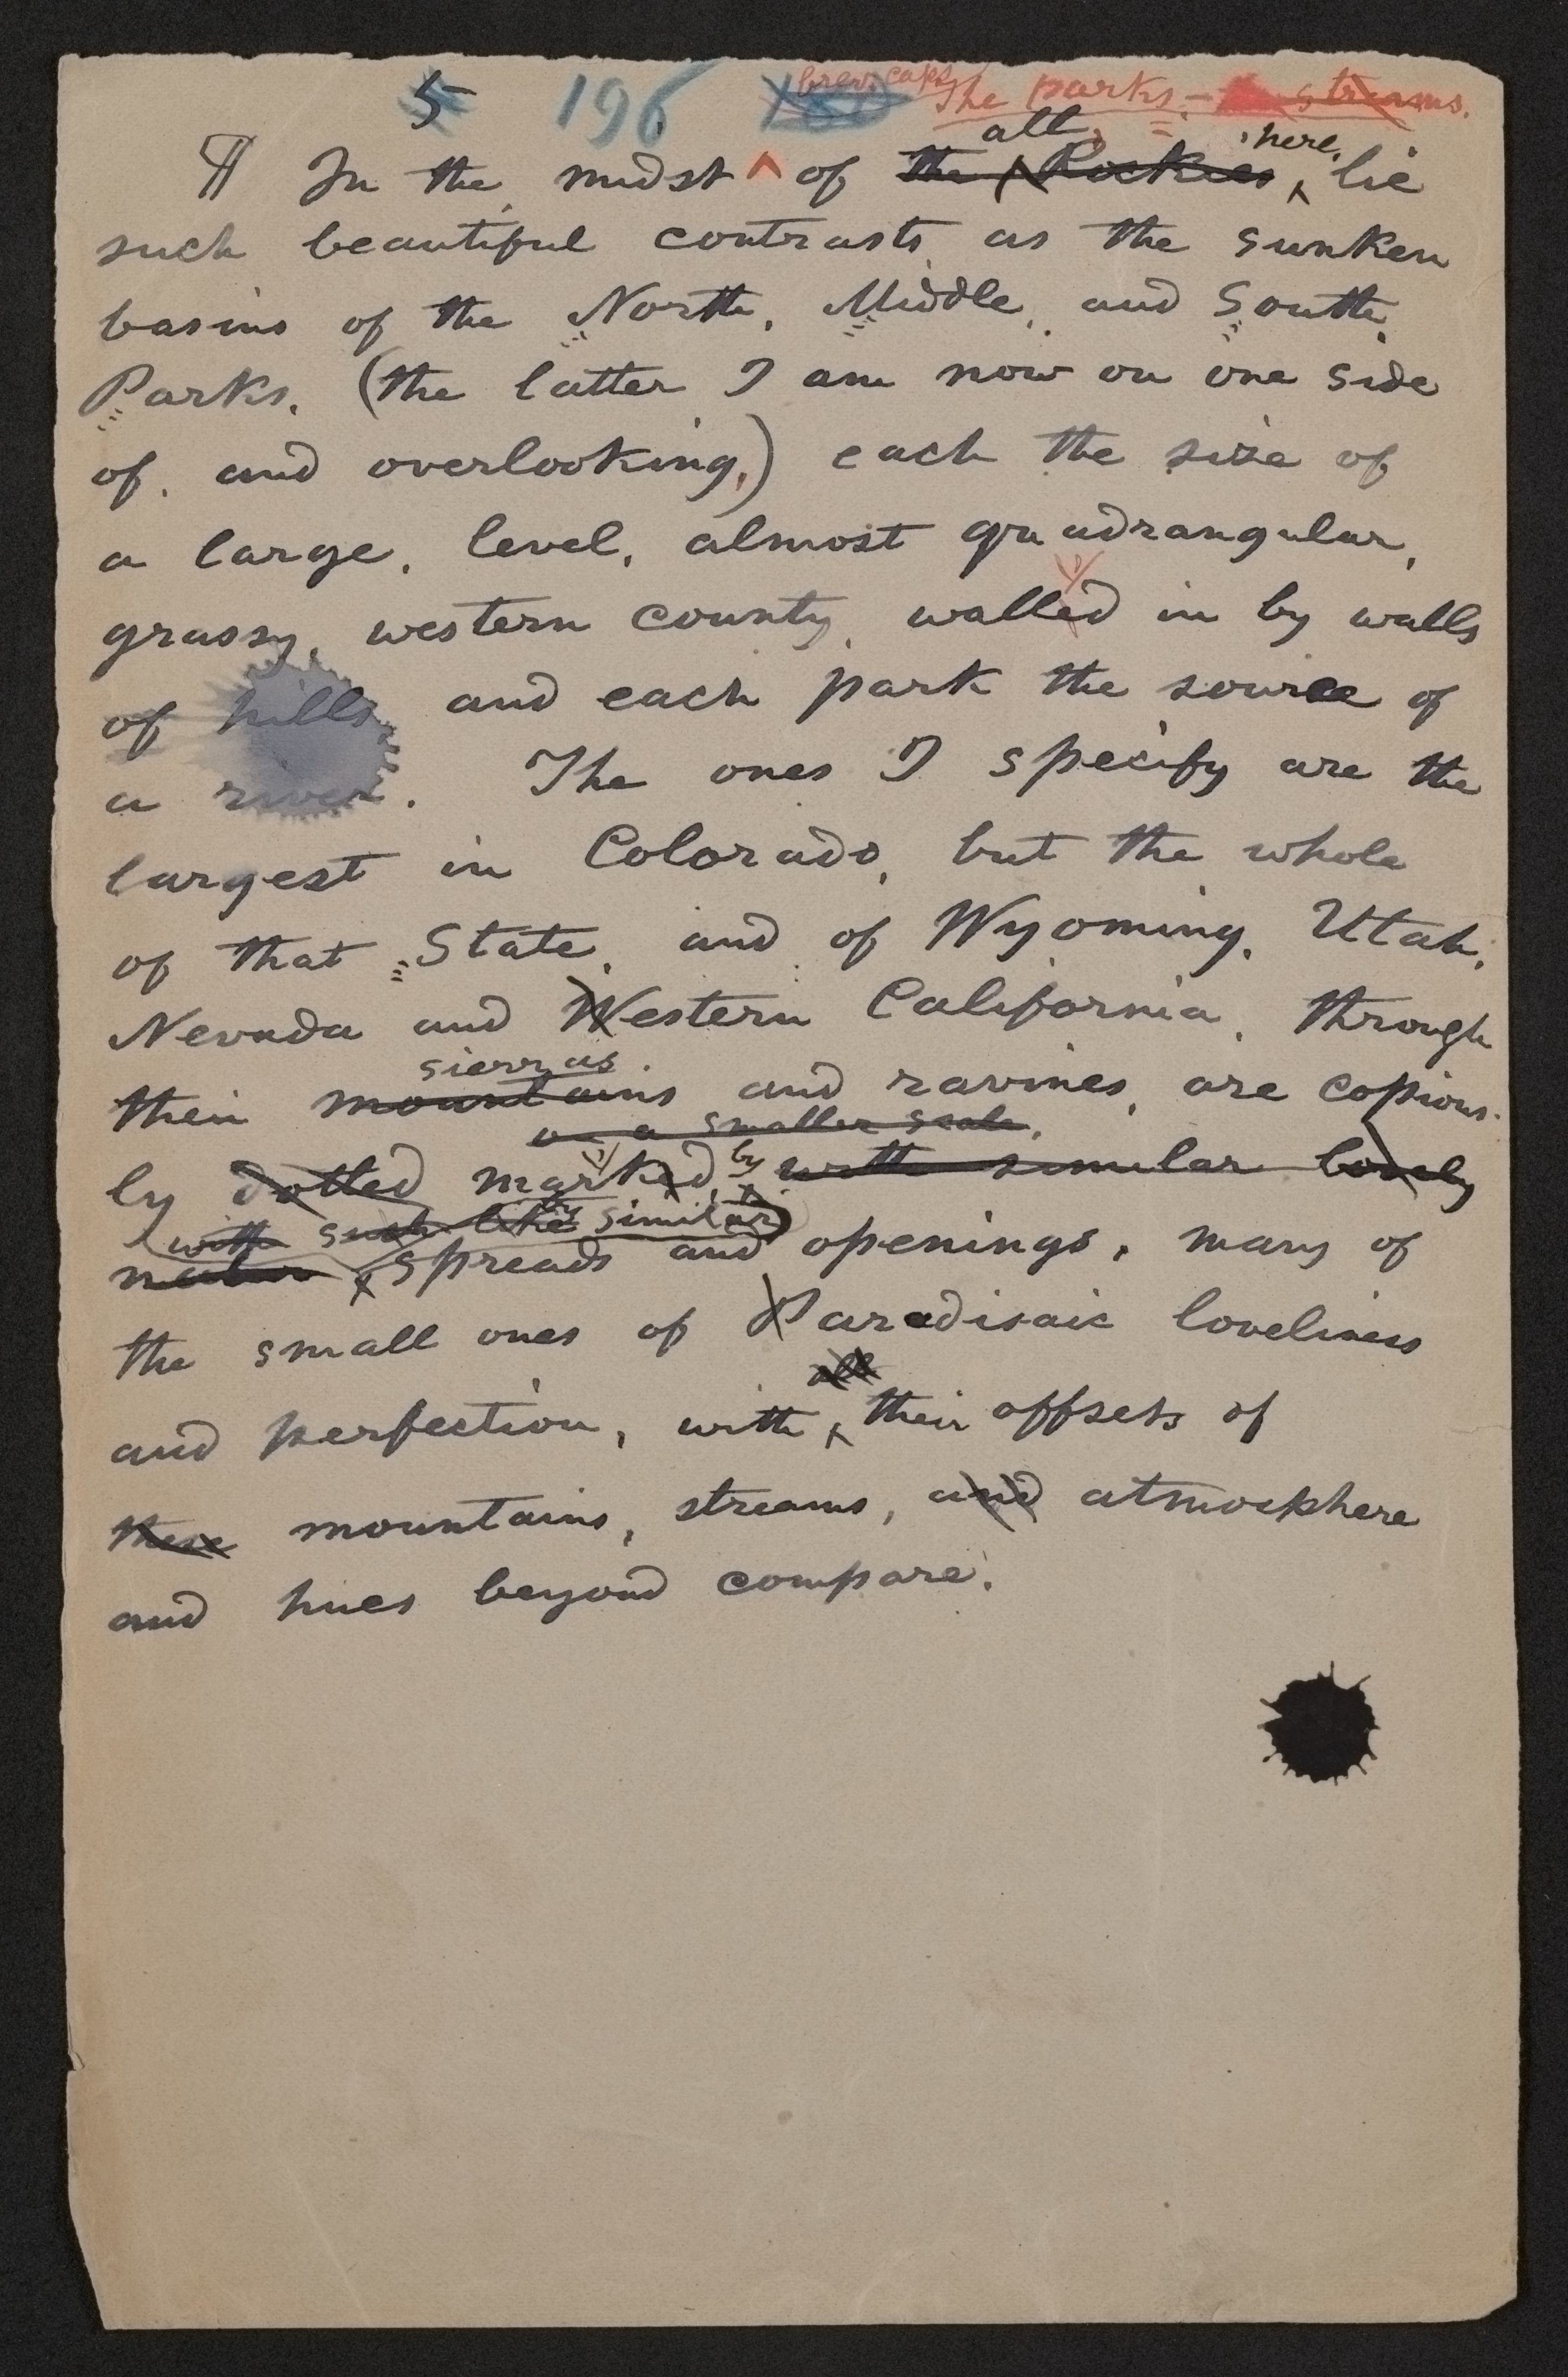 5 196 brev. caps The parks.— streams.
all, here,
¶ In the midst ^ of the Rockies, lie
such beautiful contrasts as the sunken
basins of the North, Middle, and South
Parks, (the latter I am now on one side
of, and overlooking,) each the size of
a large, level, almost quadrangular,
grassy, western county, walled in by walls
of hills, and each park the source of
a river. The ones I specify are the
largest in Colorado, but the whole
of that State, and of Wyoming, Utah,
Nevada and Western California, through
sierras
their mountains and ravines, are copious-
on a smaller scale,
ly dotted marked by with similar lovely
with such like similar
spreads and openings, many of
the small ones of Paradisaic loveliness
all
and perfection, with their offsets of
these mountains, streams, and atmosphere
and hues beyond compare.